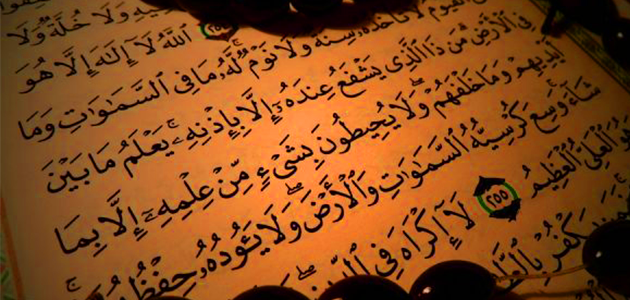 وَلَا خُلَّةٌ وَلَا
٢٥٤ ٱللَّهُ لَآ إِلَٰهَ إِلَّا هُوَ
ٱلْقَيُّومُ لَا تَأْخُذُهُۥ سِنَةٌ وَلَا نَوْمٌ لَّهُۥ مَا فِى ٱلسَّمَٰوَٰتِ وَمَا
فِى ٱلْأَرْضِ مَن ذَا ٱلَّذِى يَشْفَعُ عِندَهُۥٓ إِلَّا بِإِذْنِهِۦ ۚ يَعْلَمُ مَا بَيْنَ
أَيْدِيهِمْ وَمَا خَلْفَهُمْ ۖ وَلَا يُحِيطُونَ بِشَىْءٍ مِّنْ عِلْمِهِۦٓ إِلَّا بِمَا
شَآءَ ۚ وَسِعَ كُرْسِيُّهُ ٱلسَّمَٰوَٰتِ وَٱلْأَرْضَ ۖ وَلَا يَـُٔودُهُۥ حِفْظُهُمَا
هُوَ ٱلْعَلِىُّ ٱلْعَظِيمُ ٢٥٥ لَآ إِكْرَاهَ فِى ٱلدِّينِ ۖ
يَكْفُرْ